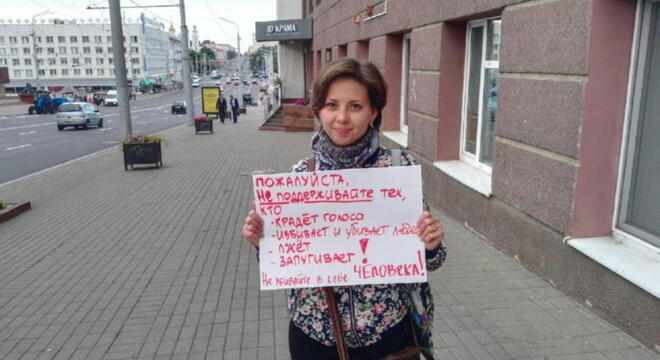 ЮУКРАМА
ПОЖАЛУЙСТА,
НЕ ПОДДЕРЖИВАЙТЕ ТЕХ,
КТО
-КРАДЁТ ГОЛОСА
-ИЗБИВАЕТ И УБИВАЕТ ЛЮДЕЙ
- ЛЖЁТ
- ЗАПУГИВАЕТ!
НЕ УБИВАЙТЕ В СЕБЕ ЧЕЛОВЕКА!